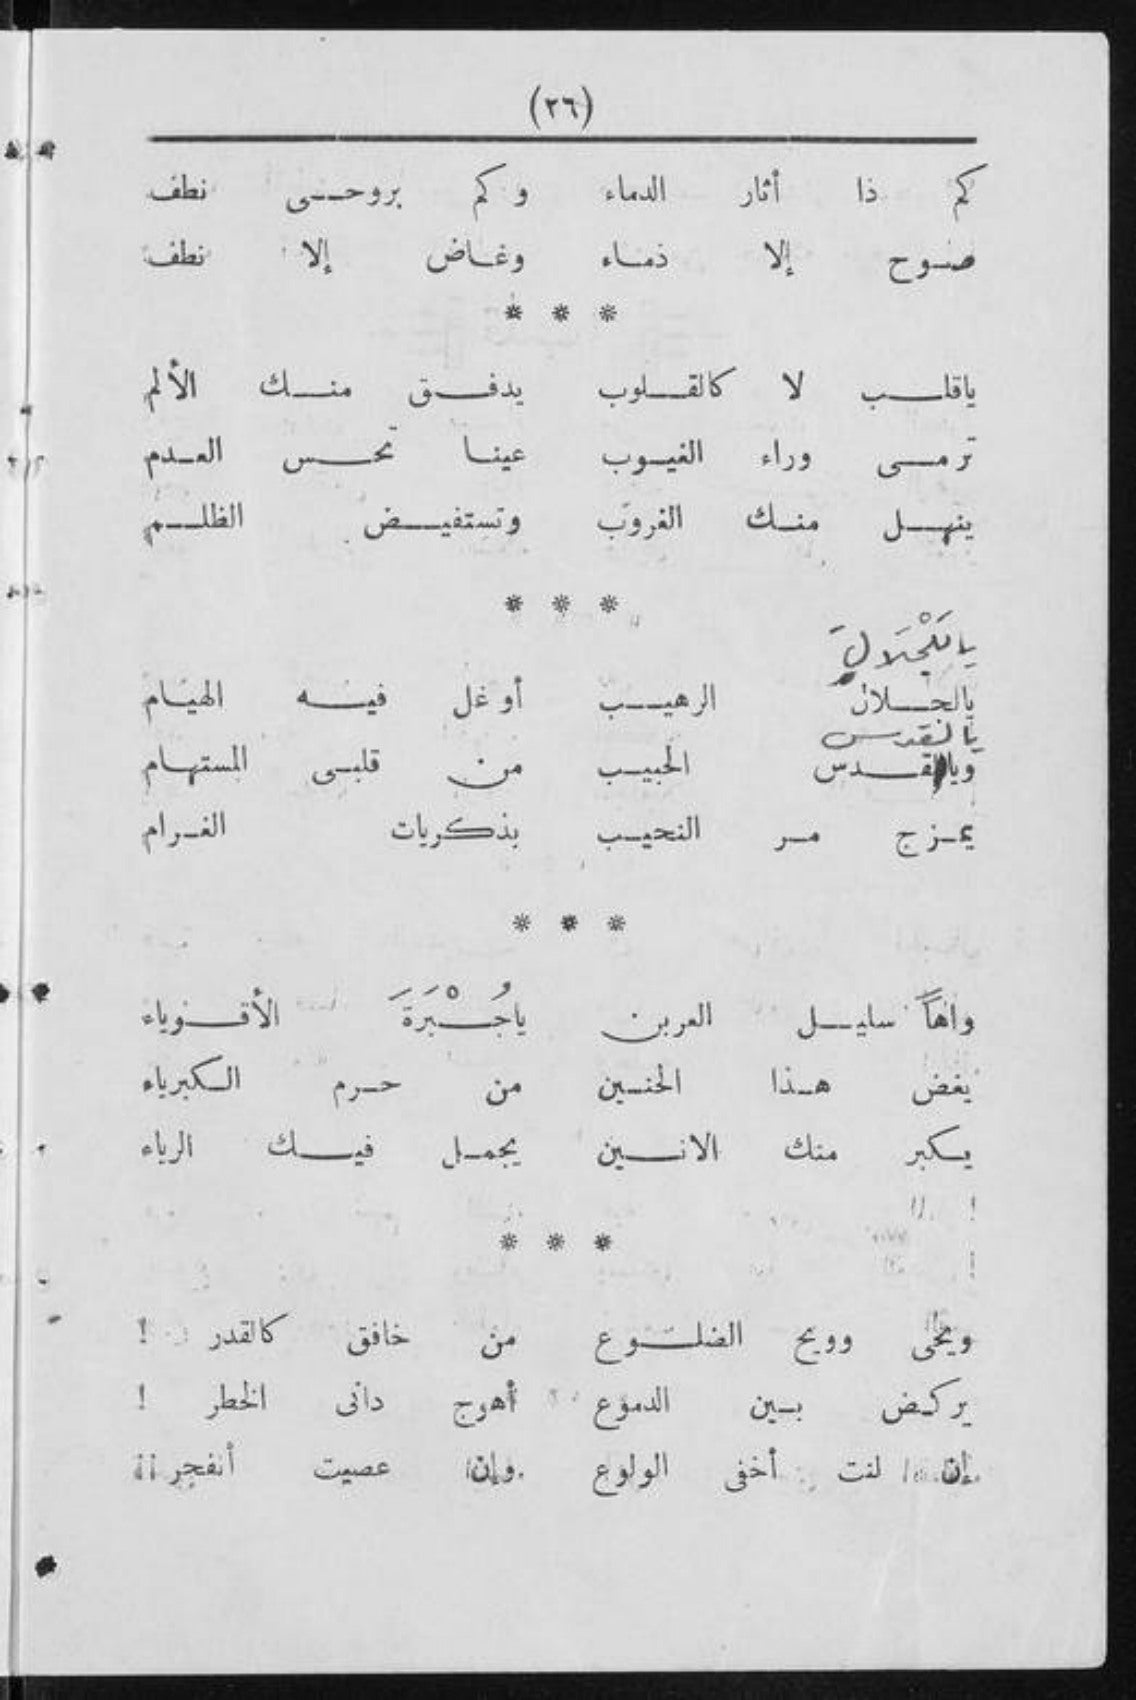 (٢٦)
كم ذا أثار الدماء وكم بروحى نطف
صوح إلا ذماء وغاض إلا نطف
* * *
ياقلب لا كالقلوب يدفق منك الألم
ترمى وراء الغيوب عينا تحس العدم
ينهل منك الغروب وتستفيض الظلم
* * *
يا لَلْجَلَالِ
يالجلال الرهيب أوغل فيه الهيام
يا لقدس
ويالقدس الحبيب من قلبى المستهام
يمزج مر النحيب بذكريات الغرام
* * *
واهاً سليل العرين ياجُبْرَةَ الأقوياء
يغض هذا الحنين من حرم الكبرياء
يكبر منك الانين يجمل فيك الرياء
* * *
ويحى وويح الضلوع من خافق كالقدر !
يركض بين الدموع أهوج دانى الخطر !
إن لنت أخفى الولوع وإن عصيت أنفجر !!